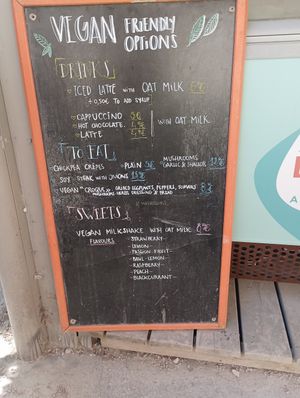 VEGAN FRIENDLY OPTIONS
DRINKS
ICED LATTE WITH OAT MILK
+0,50€ TO ADD SYRUP
CAPPUCCINO 5€
HOT CHOCOLATE WITH OAT MILK
LATTE
TO EAT
CHICKPEA CRÊPES PLAIN MUSHROOMS, GARLIC & SHALLOT 12€
SOY STEAK WITH ONIONS
VEGAN "CROQUE" GRILLED EGGPLANTS, PEPPERS, 8€
& BREAD
SWEETS
VEGAN MILKSHAKE WITH OAT MILK
FLAVOURS
- STRAWBERRY -
- LEMON -
- PASSION FRUIT -
- BASIL-LEMON -
- RASPBERRY -
- PEACH -
- BLACKCURRANT -